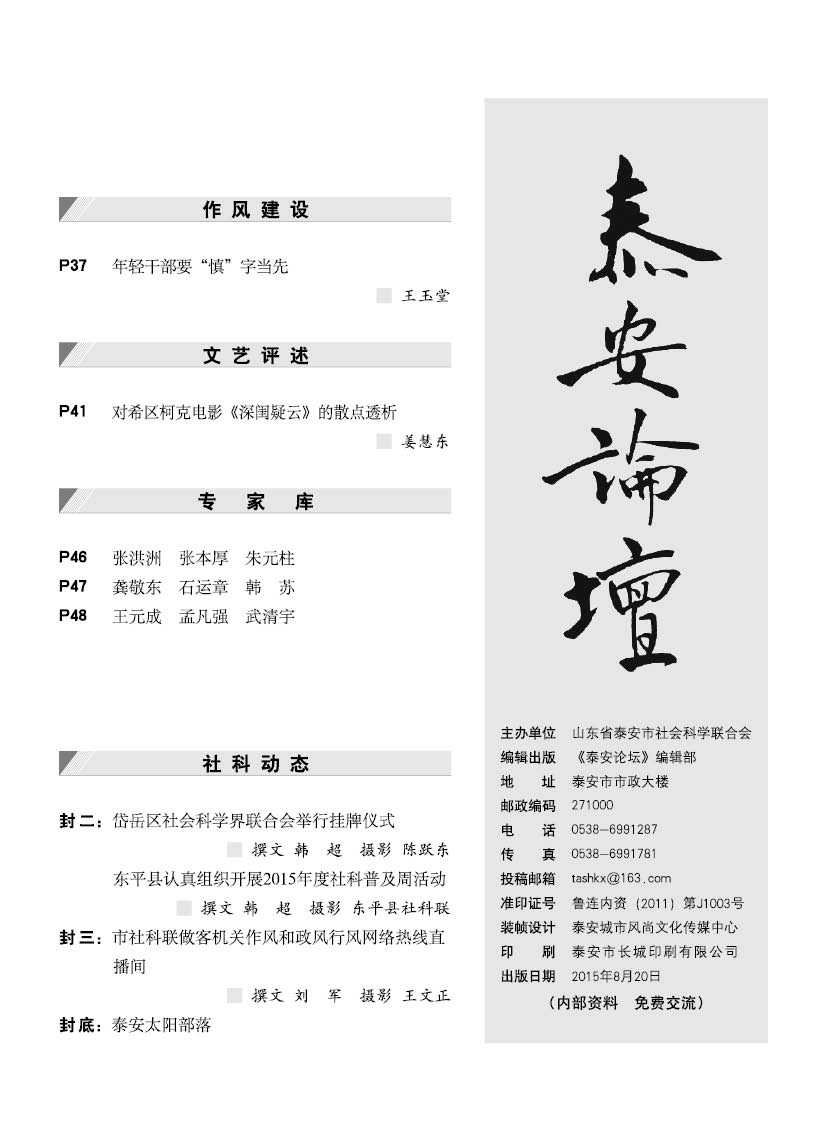 作风建设
P37 年轻干部要“慎”字当先
王玉堂
文艺评述
P41 对希区柯克电影《深闺疑云》的散点透析
姜慧东
专 家 库
P46 张洪洲 张本厚 朱元柱
P47 龚敬东 石运章 韩 苏
P48 王元成 孟凡强 武清宇
社科动态
封二：岱岳区社会科学界联合会举行挂牌仪式
撰文 韩 超 摄影 陈跃东
东平县认真组织开展2015年度社科普及周活动
撰文 韩 超 摄影 东平县社科联
封三：市社科联做客机关作风和政风行风网络热线直
播间
撰文 刘 军 摄影 王文正
封底：泰安太阳部落
泰
安
論
壇
主办单位 山东省泰安市社会科学联合会
编辑出版 《泰安论坛》编辑部
地 址 泰安市市政大楼
邮政编码 271000
电 话 0538-6991287
传 真 0538-6991781
投稿邮箱 tashkx@163.com
准印证号 鲁连内资（2011）第J1003号
装帧设计 泰安城市风尚文化传媒中心
印 刷 泰安市长城印刷有限公司
出版日期 2015年8月20日
（内部资料 免费交流）